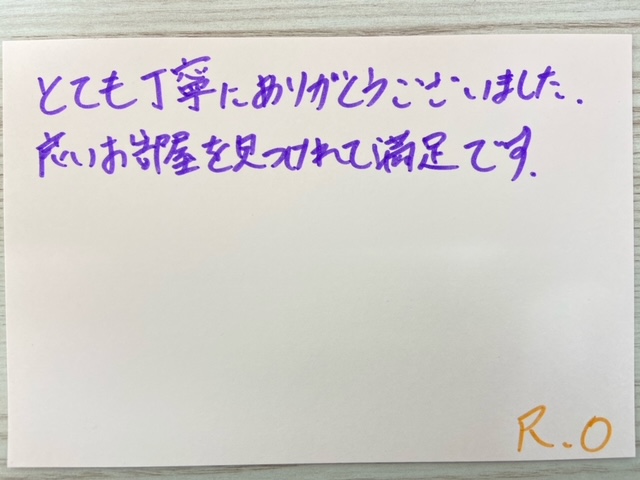 とても丁寧にありがとうございました.
良いお部屋を見つけれて満足です.
R.O